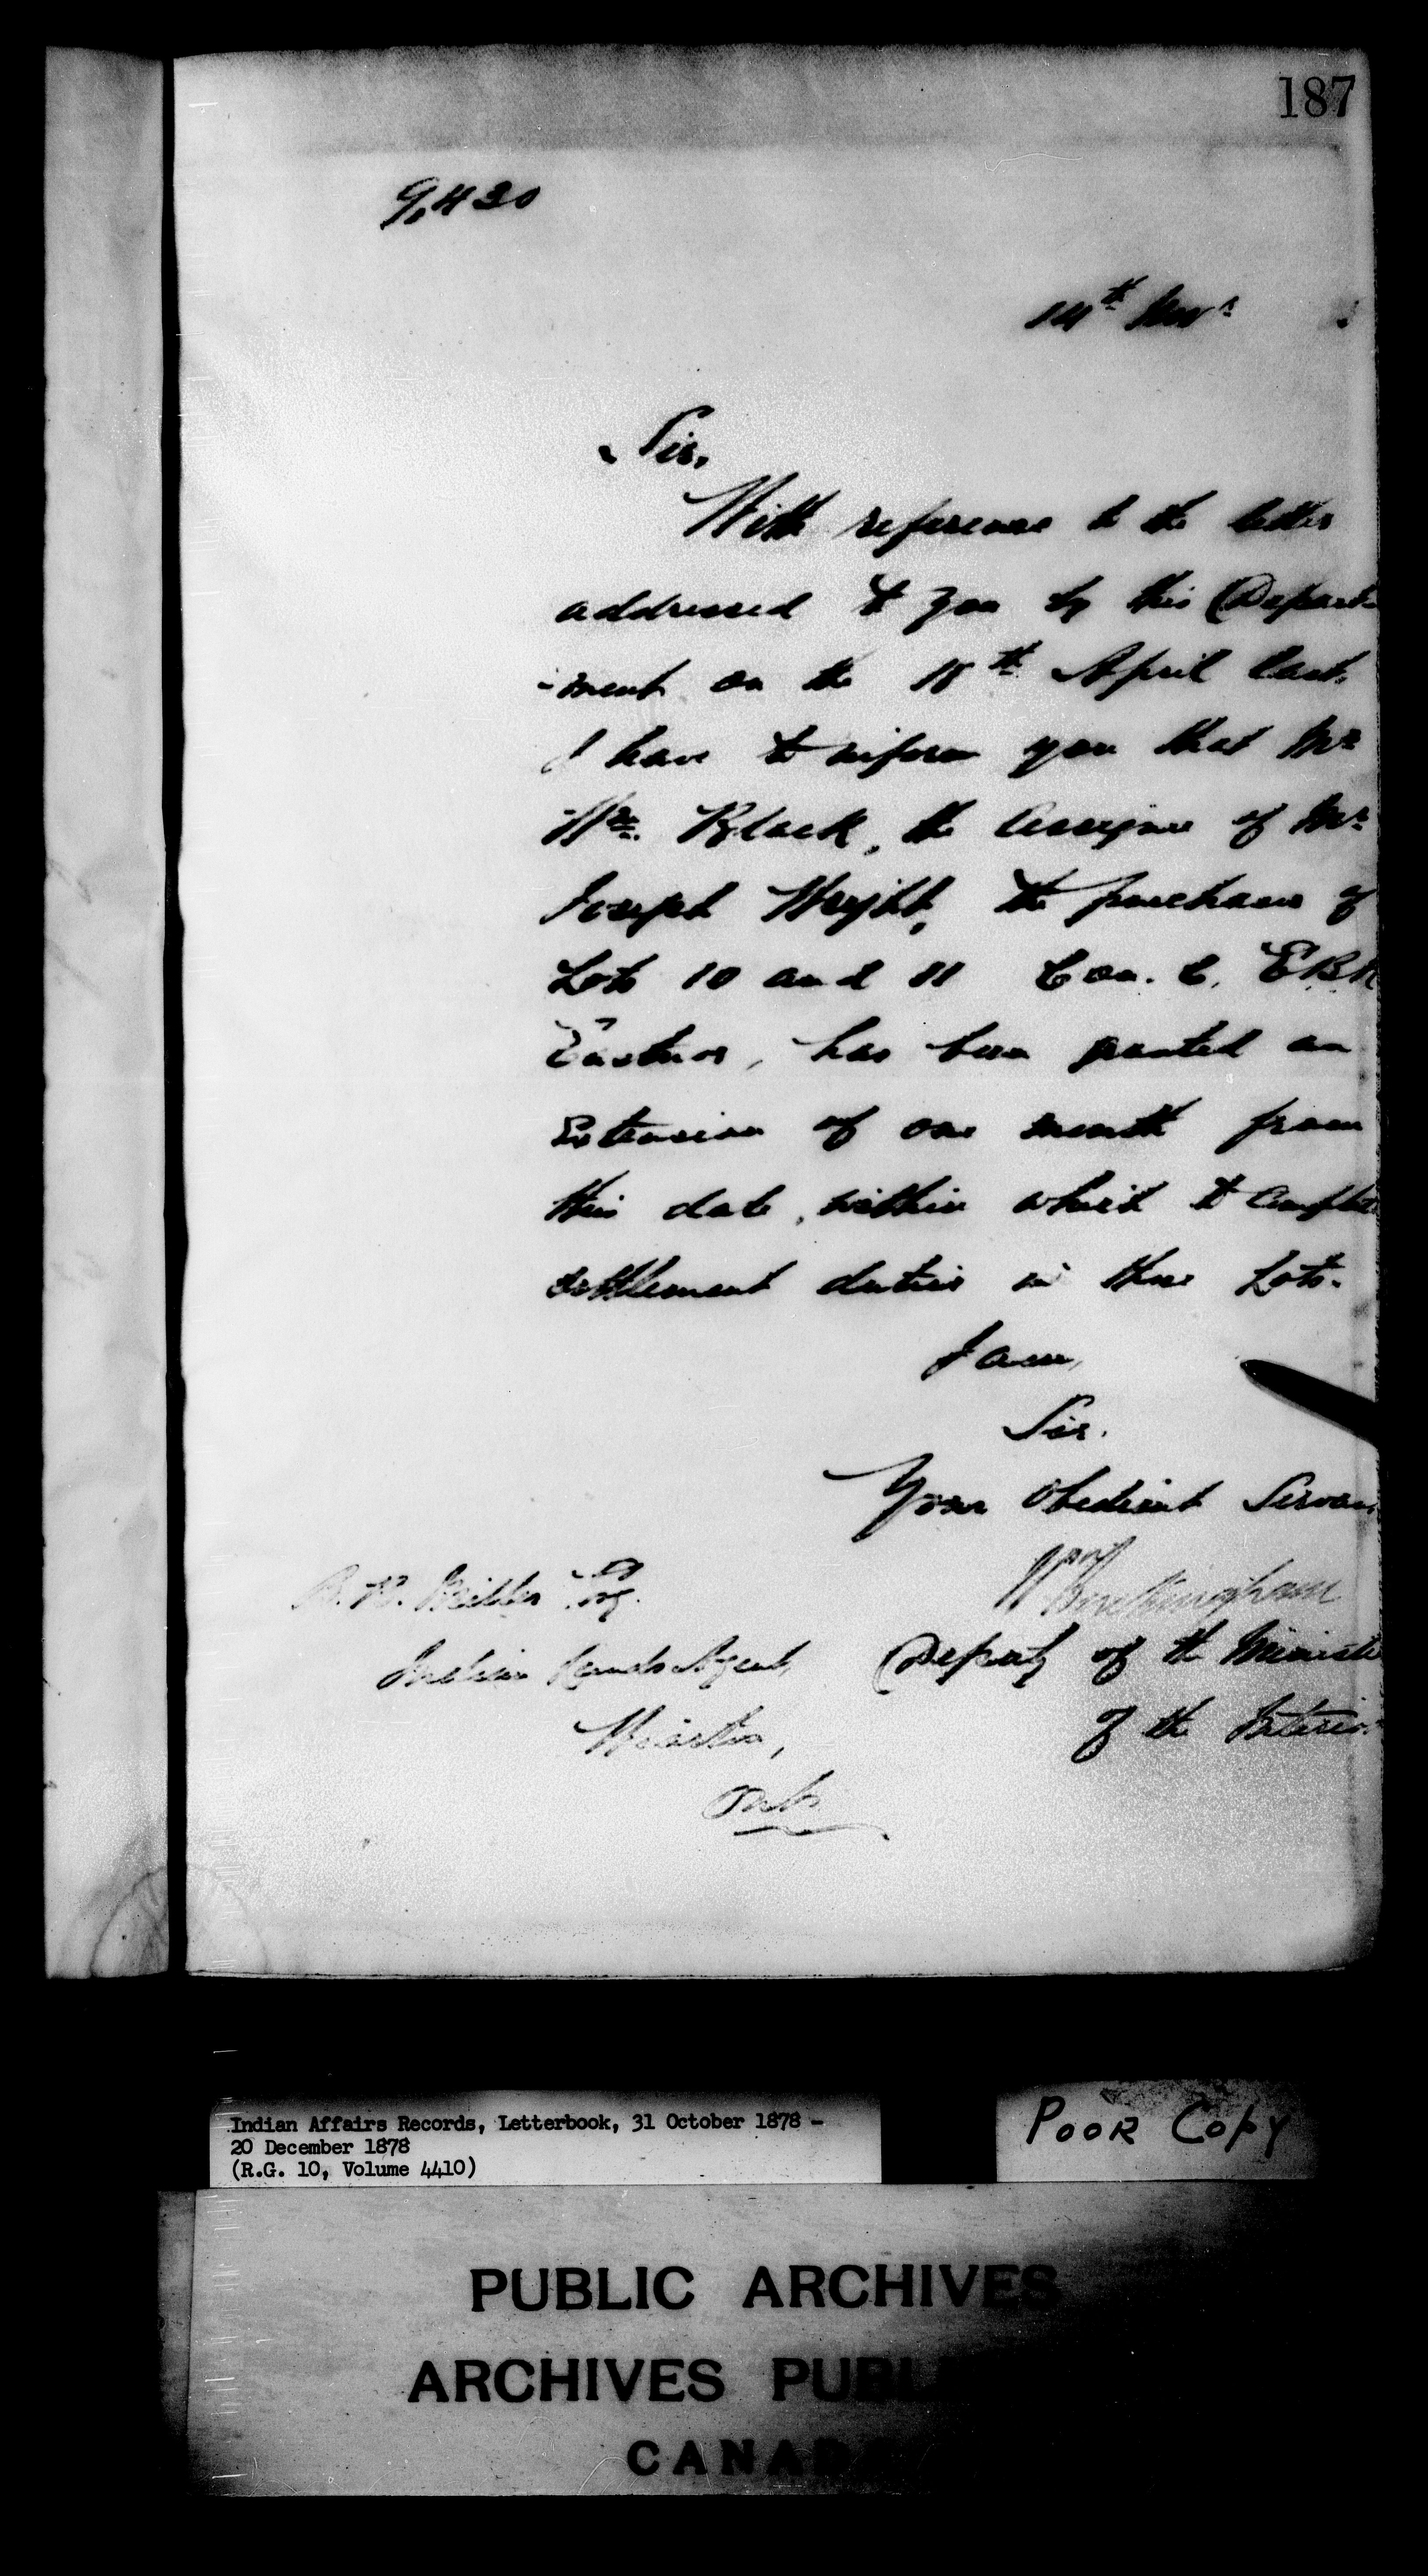 187
9,430
14th Novr
Sir,
With reference to the letter
addressed to you by this Depart
-ment on the 18th April last,
I have to inform you that Mr
Wm. Black, the Assignee of Mr
Joseph Wright, the purchaser of
Lots 10 and 11 Con. C, EBR
Eastnor, has been granted an
Extension of one month from
this date, within which to Complete
settlement duties in those Lots.
I am,
Sir.
Your Obedient Servan
Wm Buckingham
B. B. Miller Esq.
Indian Lands Agent, Deputy of the Ministe
Wiarton, of the Interior
Ont.
Indian Affairs Records, Letterbook, 31 October 1878 -
20 December 1878
(R.G. 10, Volume 4410)
POOR COPY
PUBLIC ARCHIVES
ARCHIVES PUBL
CANADA